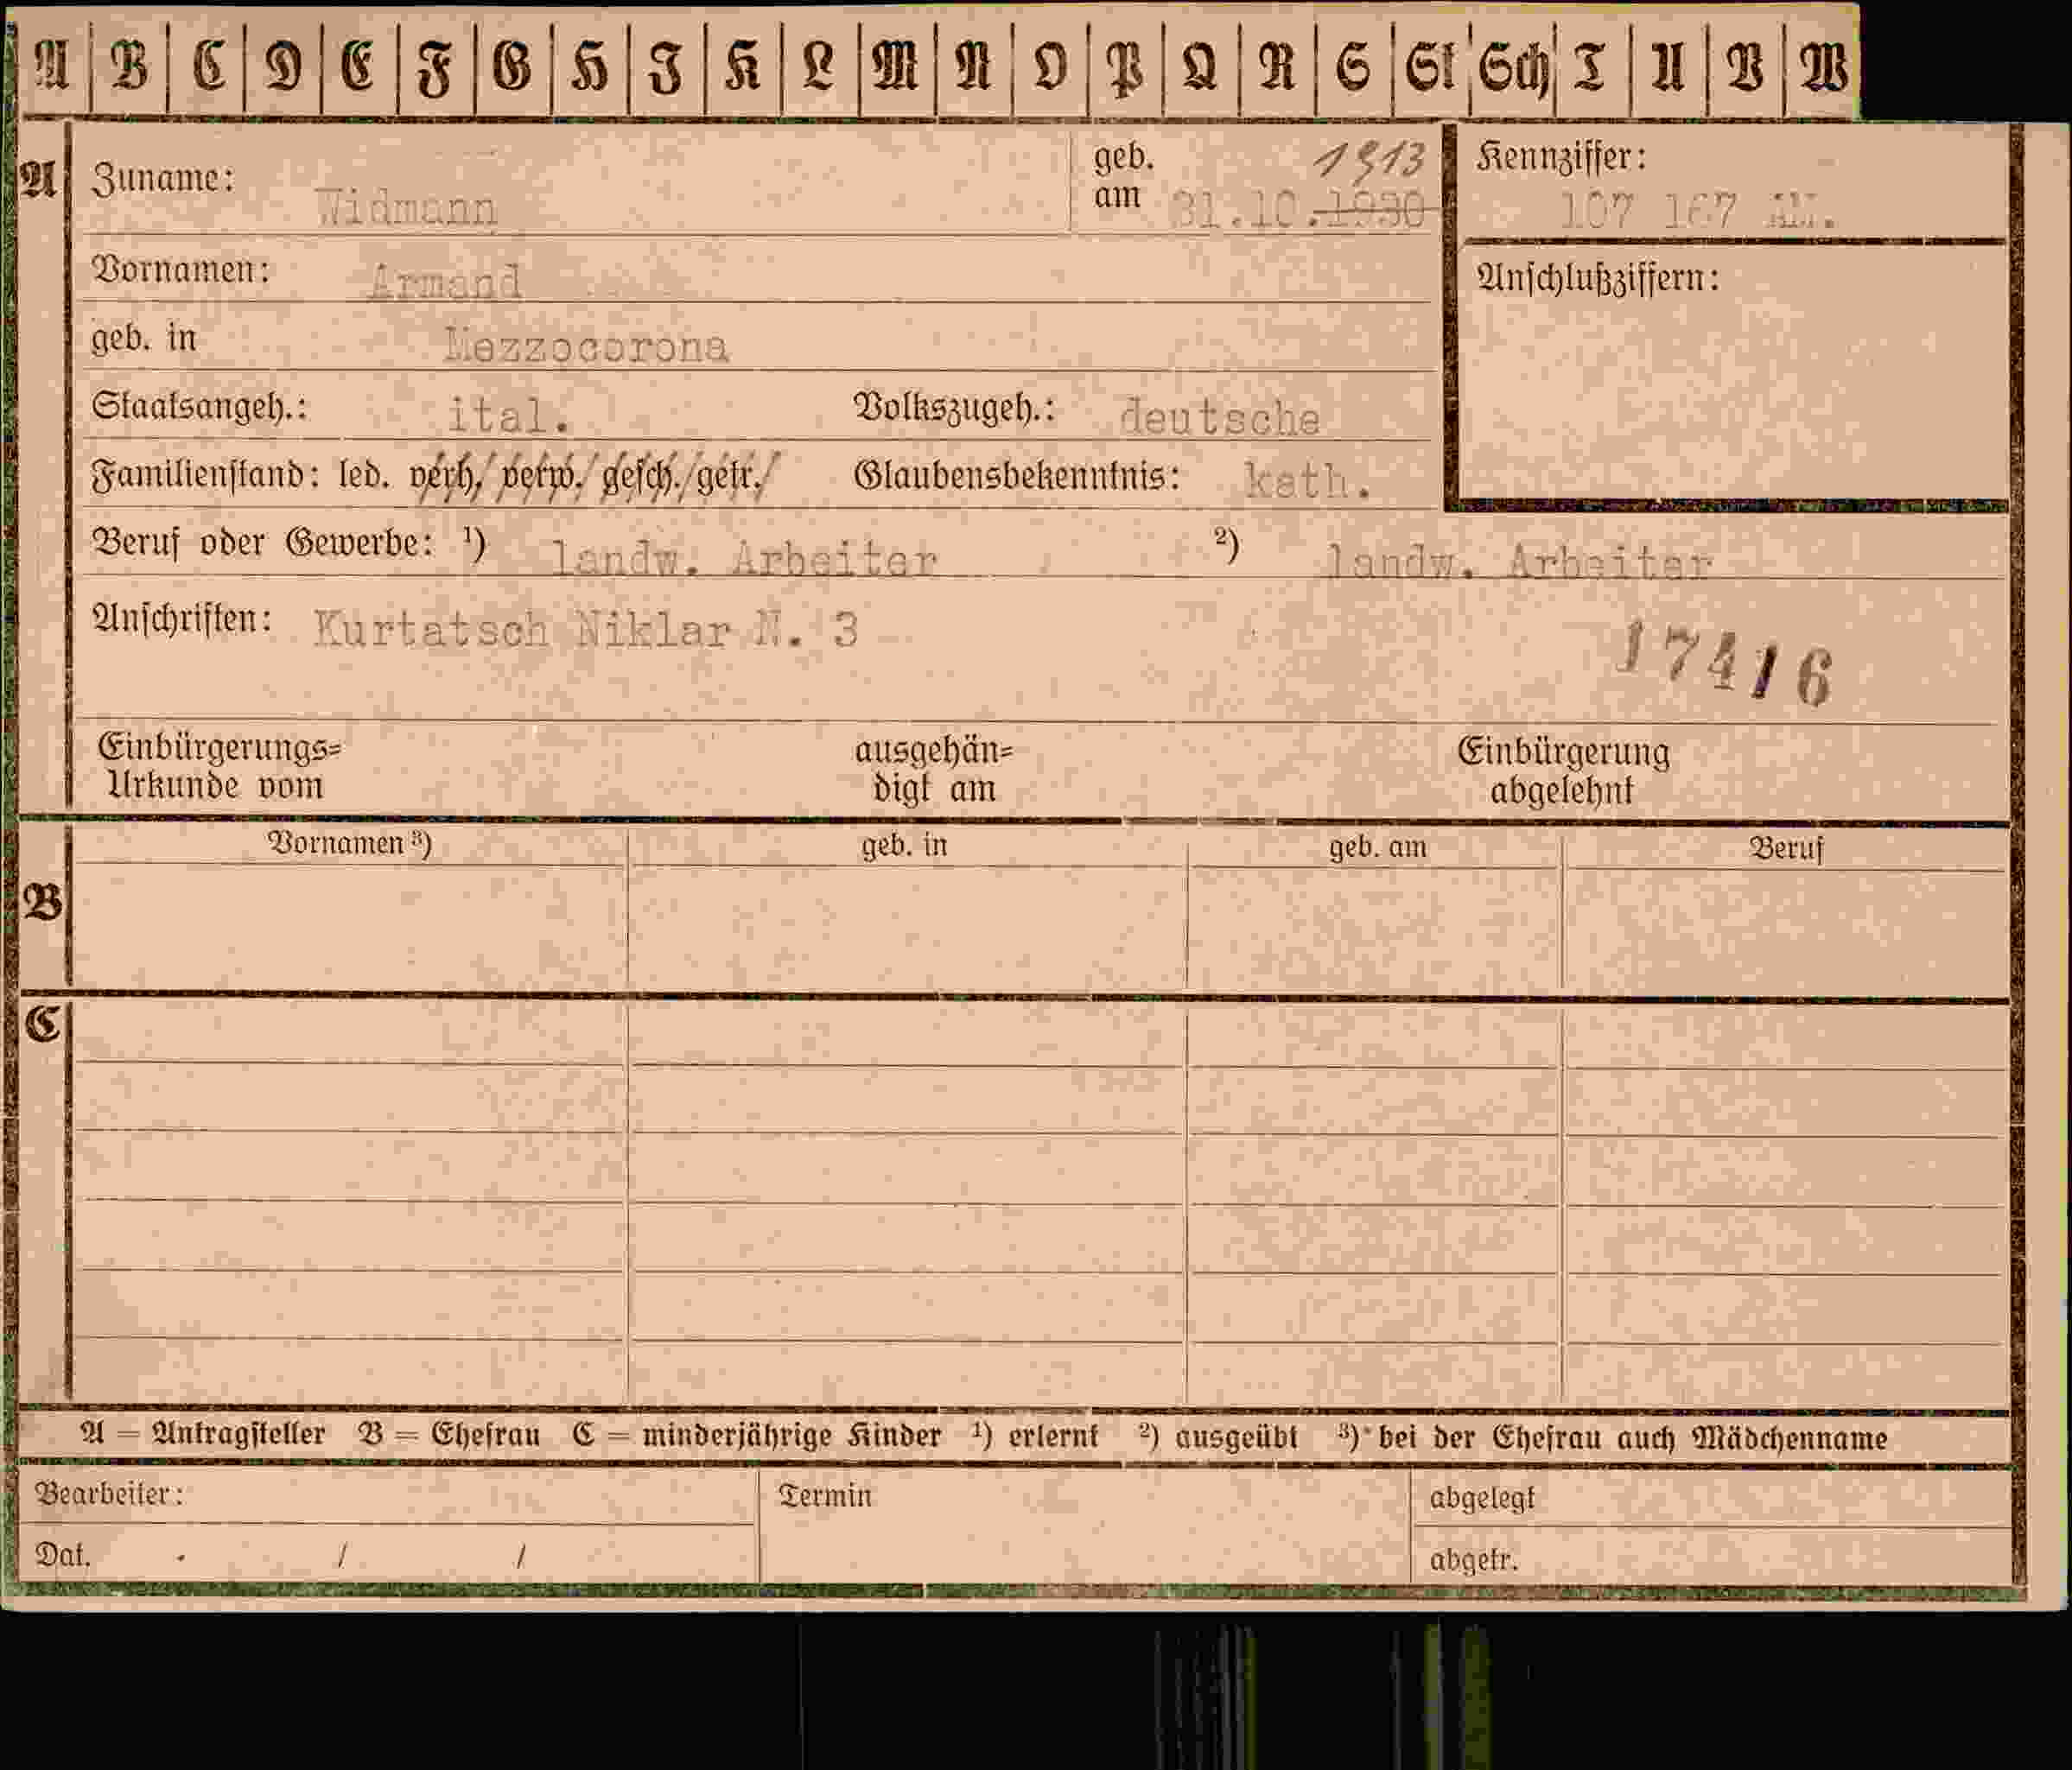 A B C D E F G H I K L M N O P Q R S St Sch T U V W
A Zuname: Widmann
geb. am 31.10.1930 1913
Kennziffer: 107 167 AW.
Vornamen: Armand
Anschlußziffern:
geb. in Mezzocorona
Staatsangeh.: ital. Volkszugeh.: deutsche
Familienstand: led. verh. verw. gesch. getr. Glaubensbekenntnis: kath.
Beruf oder Gewerbe: ¹) landw. Arbeiter ²) landw. Arbeiter
Anschriften: Kurtatsch Niklar N. 3
17416
Einbürgerungs= ausgehän= Einbürgerung
Urkunde vom digt am abgelehnt
Vornamen ³) geb. in geb. am Beruf
B
C
A = Antragsteller B = Ehefrau C = minderjährige Kinder ¹) erlernt ²) ausgeübt ³) bei der Ehefrau auch Mädchenname
Bearbeiter: Termin abgelegt
Dat. . / / abgetr.